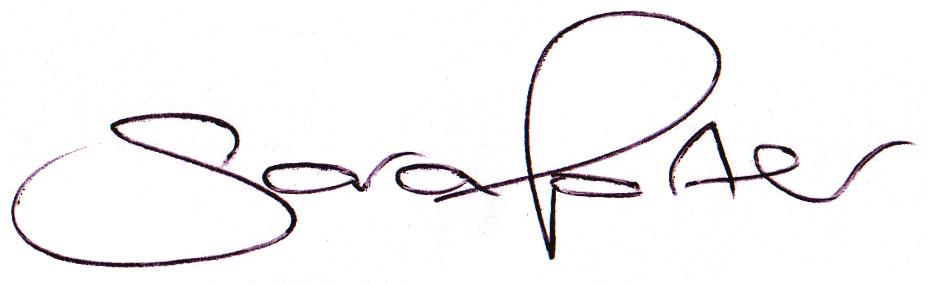 Sara Porter